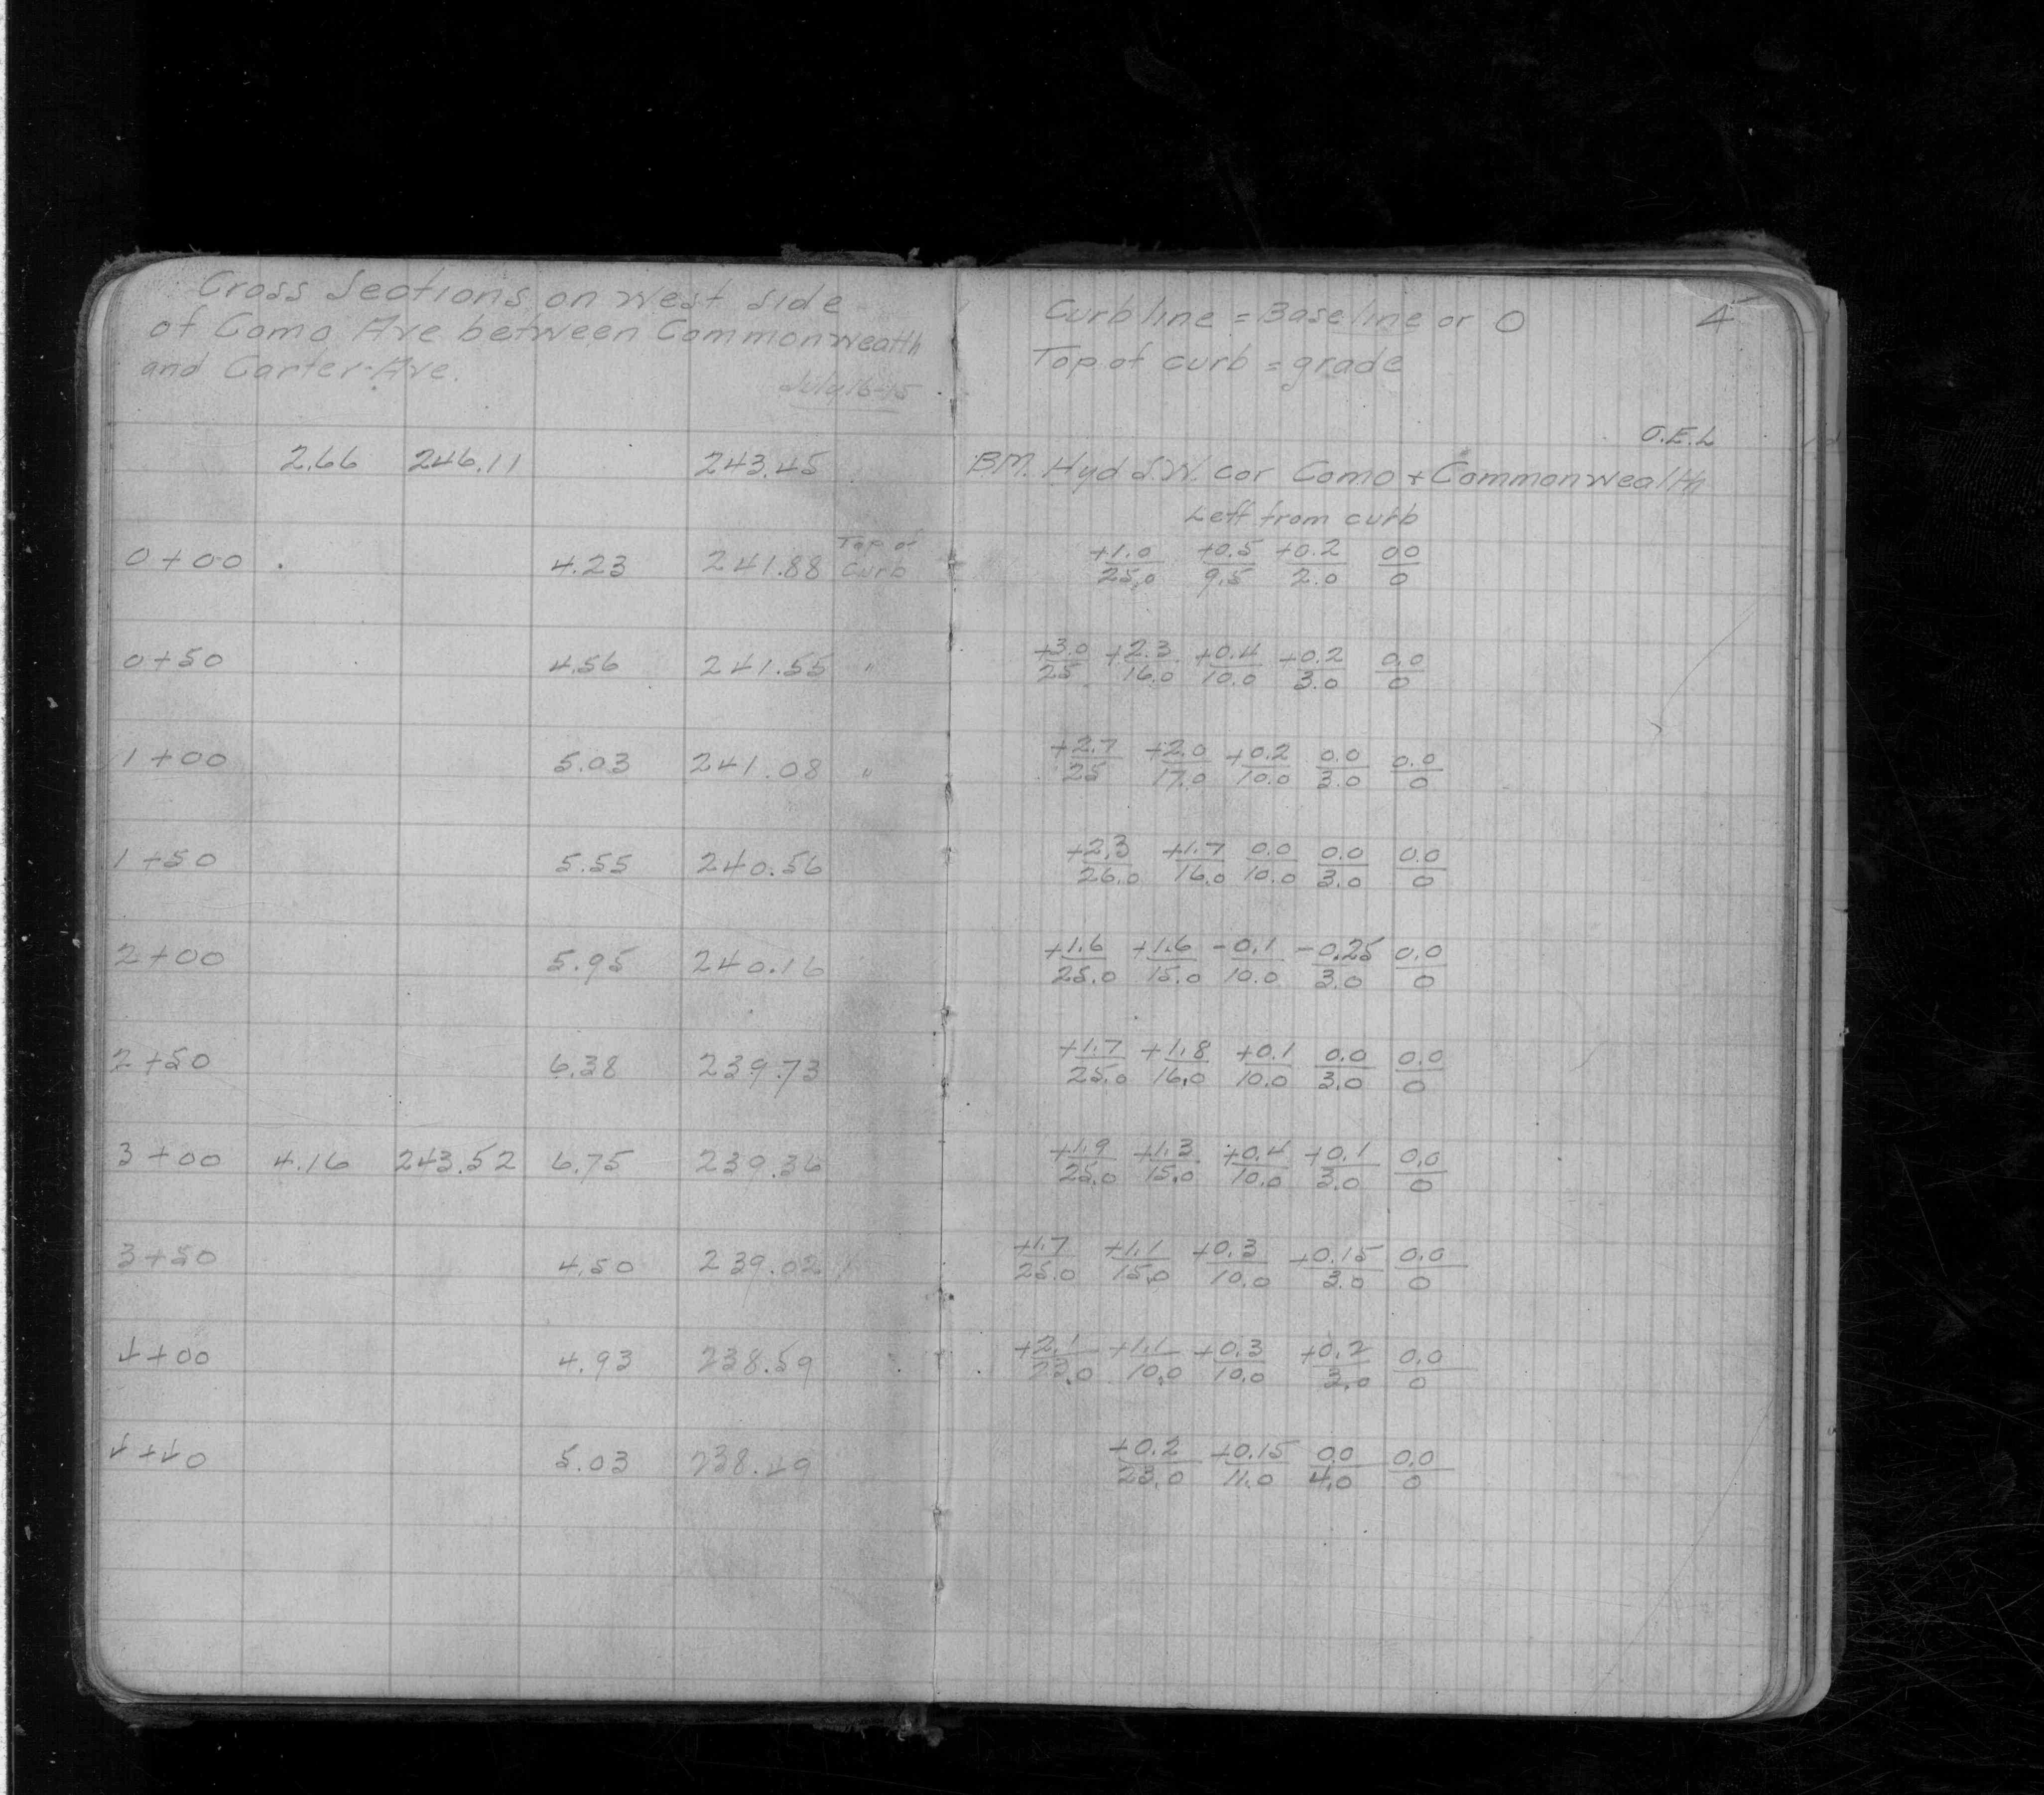 Cross Sections on west side
of Como Ave between Commonwealth
and Carter Ave.
July 16-15
2.66 246.11 243.45
0+00 4.23 241.88 Top of Curb
0+50 4.56 241.55 "
1+00 5.03 241.08 "
1+50 5.55 240.56
2+00 5.95 240.16
2+50 6.38 239.73
3+00 4.16 243.52 6.75 239.36
3+50 4.50 239.02
4+00 4.93 238.59
4+40 5.03 238.49
Curb line = Baseline or 0 4
Top of curb = grade
O.E.L
B.M. Hyd S.W. cor Como + Commonwealth
Left from curb
+1.0 +0.5 +0.2 00
25.0 9.5 2.0 0
+3.0 +2.3 +0.4 +0.2 0.0
25 16.0 10.0 3.0 0
+2.7 +2.0 +0.2 0.0 0.0
25 17.0 10.0 3.0 0
+2.3 +1.7 0.0 0.0 0.0
26.0 16.0 10.0 3.0 0
+1.6 +1.6 -0.1 -0.25 0.0
25.0 15.0 10.0 3.0 0
+1.7 +1.8 +0.1 0.0 0.0
25.0 16.0 10.0 3.0 0
+1.9 +1.3 +0.4 +0.1 0.0
25.0 15.0 10.0 3.0 0
+1.7 +1.1 +0.3 +0.15 0.0
25.0 15.0 10.0 3.0 0
+2.1 +1.1 +0.3 +0.2 0.0
23.0 10.0 10.0 3.0 0
+0.2 +0.15 0.0 0.0
23.0 11.0 4.0 0